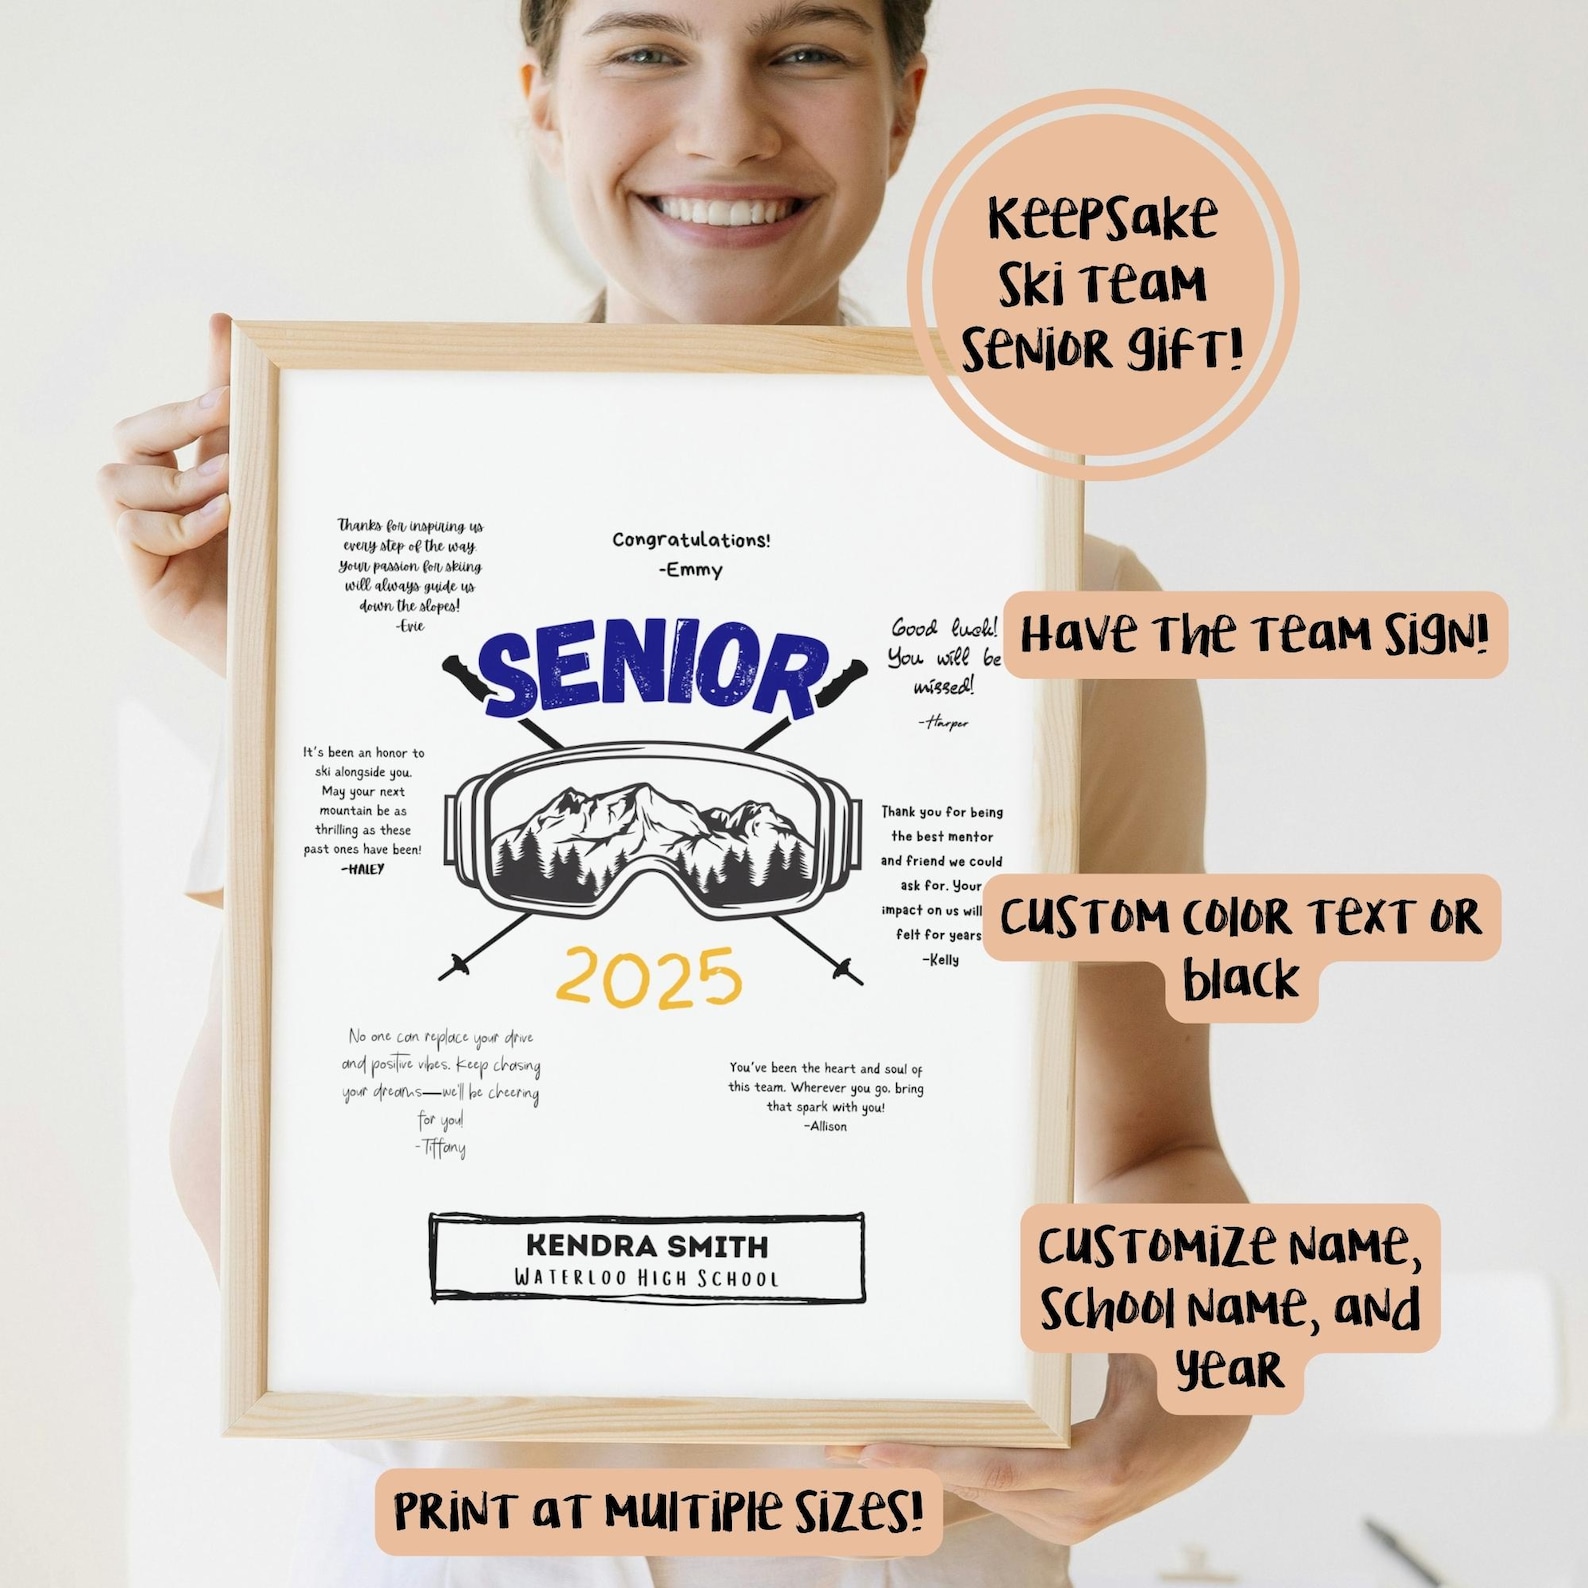 Keepsake
Ski Team
Senior gift!
Thanks for inspiring us
every step of the way.
Your passion for skiing
will always guide us
down the slopes!
-Evie
Congratulations!
-Emmy
Good luck!
You will be
missed!
-Harper
Have the team sign!
SENIOR
It's been an honor to
ski alongside you.
May your next
mountain be as
thrilling as these
past ones have been!
-HALEY
Thank you for being
the best mentor
and friend we could
ask for. Your
impact on us will
felt for years
-Kelly
Custom color text or
black
2025
No one can replace your drive
and positive vibes. Keep chasing
your dreams—we'll be cheering
for you!
-Tiffany
You've been the heart and soul of
this team. Wherever you go, bring
that spark with you!
-Allison
KENDRA SMITH
WATERLOO HIGH SCHOOL
Customize name,
school name, and
year
Print at multiple sizes!